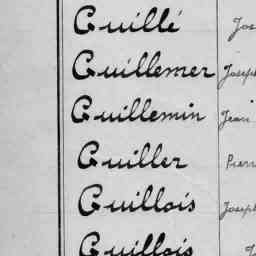 Guillé Jos
Guillemer Joseph
Guillemin Jean
Guiller Pierr
Guillois Joseph
Guillois